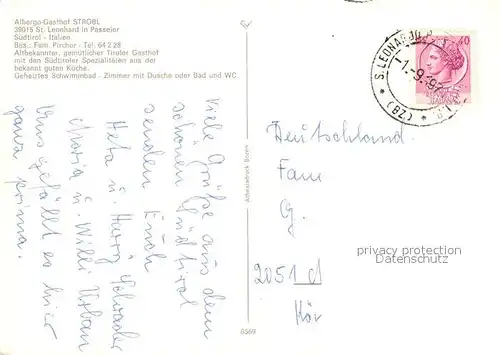 Albergo-Gasthof STROBL
39015 St. Leonhard in Passeier
Südtirol - Italien
Bes.: Fam. Pircher - Tel. 64 2 28
Altbekannter, gemütlicher Tiroler Gasthof
mit den Südtiroler Spezialitäten aus der
bekannt guten Küche.
Geheiztes Schwimmbad - Zimmer mit Dusche oder Bad und WC.
Viele Grüße aus dem
schönen Südtirol
senden Euch
Heta u. Harry Schrader
Maria u. Willi Urban
Uns gefällt es hier
ganz prima.
Athesiadruck Bozen
6569
S. LEONARDO
1.-9.
(BZ)
40
Deutschland
Fam
G.
2051 d
privacy protection
Datenschutz